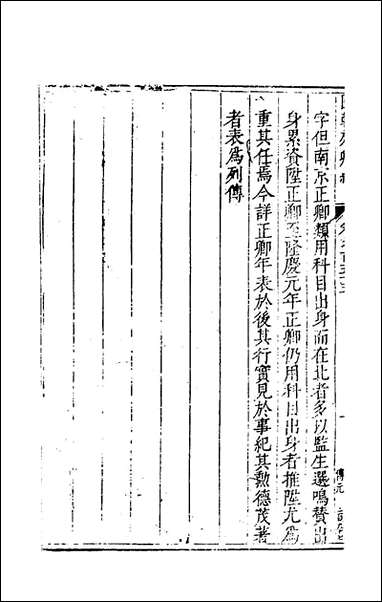 國朝列卿紀
卷之一百五十三
字但南京正卿類用科目出身而在北者多以監生選鳴贊出
身累資陞正卿至隆慶元年正卿仍用科目出身者推陞尤為
重其任焉今詳正卿年表於後其行實見於事紀其勲德茂著
者表爲列傳